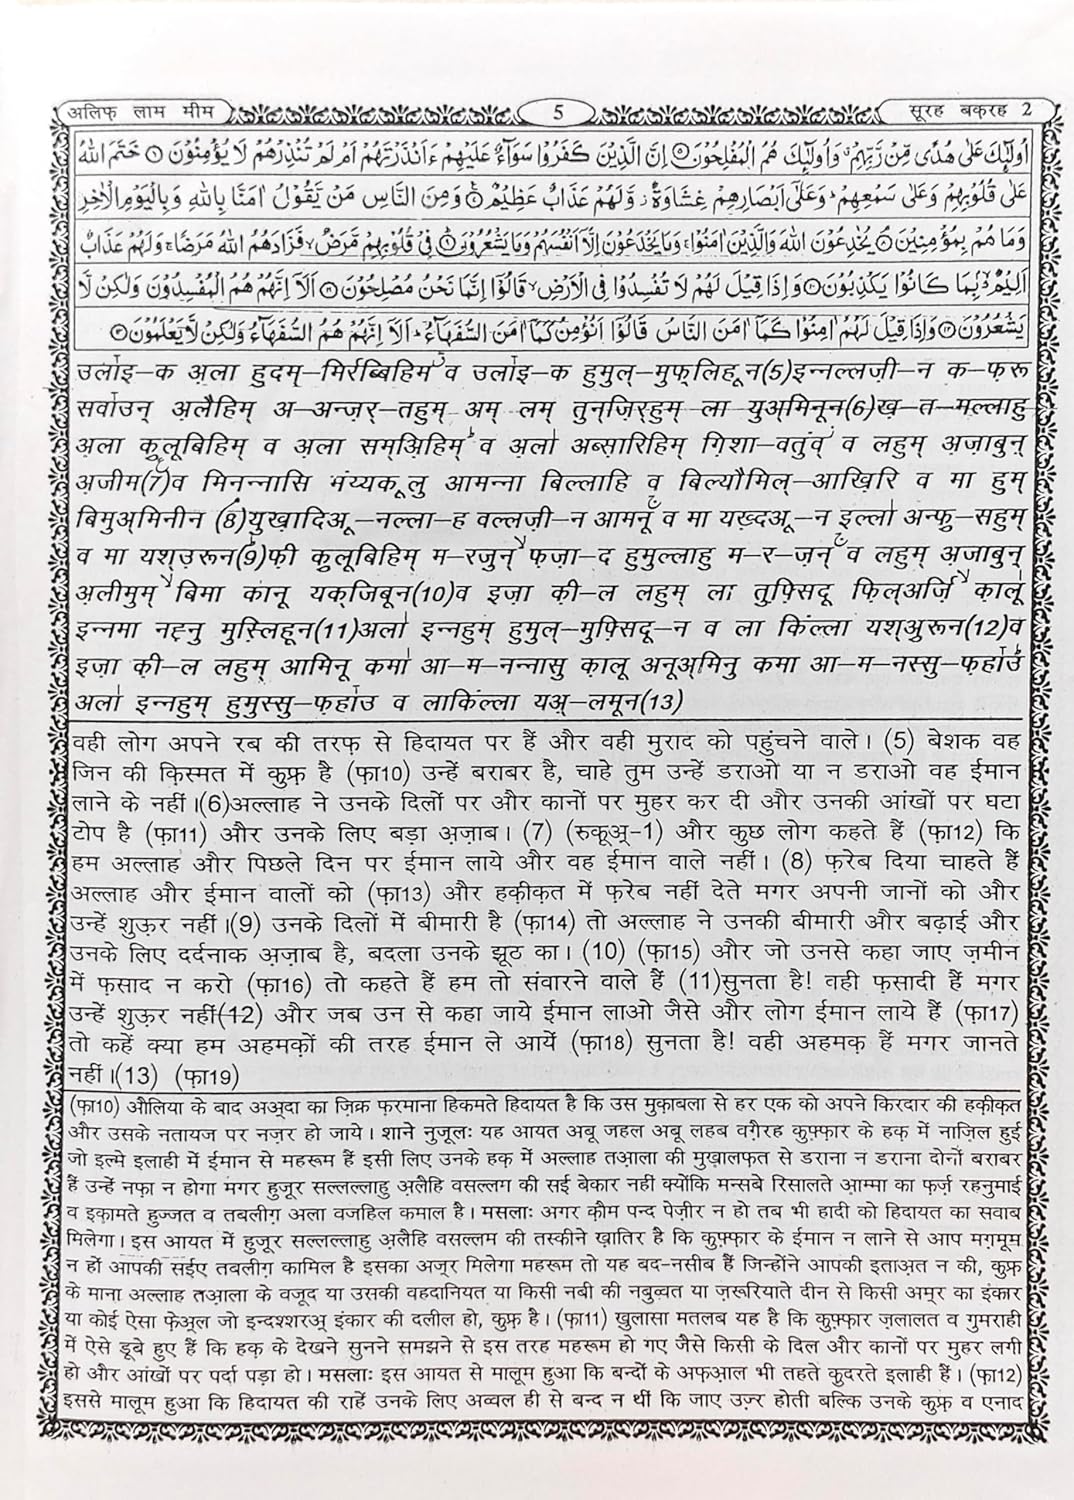 अलिफ़ लाम मीम
5
सूरह बक़रह 2
اُولٰٓئِكَ عَلٰى هُدًى مِّنْ رَّبِّهِمْ ۗ وَاُولٰٓئِكَ هُمُ الْمُفْلِحُوْنَ ۝۵ اِنَّ الَّذِيْنَ كَفَرُوْا سَوَآءٌ عَلَيْهِمْ ءَاَنْذَرْتَهُمْ اَمْ لَمْ تُنْذِرْهُمْ لَا يُؤْمِنُوْنَ ۝۶ خَتَمَ اللّٰهُ
عَلٰى قُلُوْبِهِمْ وَعَلٰى سَمْعِهِمْ ؕ وَعَلٰٓى اَبْصَارِهِمْ غِشَاوَةٌ ؗ وَّلَهُمْ عَذَابٌ عَظِيْمٌ ۝۷ وَمِنَ النَّاسِ مَنْ يَّقُوْلُ اٰمَنَّا بِاللّٰهِ وَبِالْيَوْمِ الْاٰخِرِ
وَمَا هُمْ بِمُؤْمِنِيْنَ ۝۸ يُخٰدِعُوْنَ اللّٰهَ وَالَّذِيْنَ اٰمَنُوْا ۚ وَمَا يَخْدَعُوْنَ اِلَّآ اَنْفُسَهُمْ وَمَا يَشْعُرُوْنَ ۝۹ فِىْ قُلُوْبِهِمْ مَّرَضٌ ۙ فَزَادَهُمُ اللّٰهُ مَرَضًا ۚ وَلَهُمْ عَذَابٌ
اَلِيْمٌۢ ۙ بِمَا كَانُوْا يَكْذِبُوْنَ ۝۱۰ وَاِذَا قِيْلَ لَهُمْ لَا تُفْسِدُوْا فِى الْاَرْضِ ۙ قَالُوْٓا اِنَّمَا نَحْنُ مُصْلِحُوْنَ ۝۱۱ اَلَآ اِنَّهُمْ هُمُ الْمُفْسِدُوْنَ وَلٰكِنْ لَّا
يَشْعُرُوْنَ ۝۱۲ وَاِذَا قِيْلَ لَهُمْ اٰمِنُوْا كَمَآ اٰمَنَ النَّاسُ قَالُوْٓا اَنُؤْمِنُ كَمَآ اٰمَنَ السُّفَهَآءُ ؕ اَلَآ اِنَّهُمْ هُمُ السُّفَهَآءُ وَلٰكِنْ لَّا يَعْلَمُوْنَ ۝۱۳
उलाइ–क अ़ला हुदम्–मिर्रब्बिहिम व उलाइ–क हुमुल्–मुफ़्लिहून(5)इन्नल्लज़ी–न क–फ़रू
सवाउन् अ़लैहिम् अ–अन्ज़र्–तहुम् अम् लम् तुन्ज़िर्हुम् ला युअ्मिनून(6)ख़–त–मल्लाहु
अ़ला कुलूबिहिम् व अ़ला सम्अ़िहिम् व अ़ला अब्सारिहिम् ग़िशा–वतुंव् व लहुम् अ़ज़ाबुन्
अ़ज़ीम(7)व मिनन्नासि मंय्यकूलु आमन्ना बिल्लाहि व बिल्यौमिल्–आख़िरि व मा हुम्
बिमुअ्मिनीन (8)युख़ादिअू–नल्ला–ह वल्लज़ी–न आमनू व मा यख़्दअू–न इल्ला अन्फ़ु–सहुम्
व मा यश्उरून(9)फ़ी कुलूबिहिम् म–रजुन् फ़ज़ा–द हुमुल्लाहु म–र–ज़न् व लहुम् अ़ज़ाबुन्
अ़लीमुम् बिमा कानू यक्ज़िबून(10)व इज़ा की–ल लहुम् ला तुफ़्सिदू फ़िल्अर्ज़ि कालू
इन्नमा नह्नु मुस्लिहून(11)अला इन्नहुम् हुमुल्–मुफ़्सिदू–न व ला किल्ला यश्अुरून(12)व
इज़ा की–ल लहुम् आमिनू कमा आ–म–नन्नासु कालू अनूअ्मिनु कमा आ–म–नस्सु–फ़हाउ
अला इन्नहुम् हुमुस्सु–फ़हाउ व लाकिल्ला यअ्–लमून(13)
वही लोग अपने रब की तरफ़ से हिदायत पर हैं और वही मुराद को पहुंचने वाले। (5) बेशक वह
जिन की क़िस्मत में कुफ़्र है (फ़ा10) उन्हें बराबर है, चाहे तुम उन्हें डराओ या न डराओ वह ईमान
लाने के नहीं।(6)अल्लाह ने उनके दिलों पर और कानों पर मुहर कर दी और उनकी आंखों पर घटा
टोप है (फ़ा11) और उनके लिए बड़ा अज़ाब। (7) (रुकूअ़्-1) और कुछ लोग कहते हैं (फ़ा12) कि
हम अल्लाह और पिछले दिन पर ईमान लाये और वह ईमान वाले नहीं। (8) फ़रेब दिया चाहते हैं
अल्लाह और ईमान वालों को (फ़ा13) और हक़ीक़त में फ़रेब नहीं देते मगर अपनी जानों को और
उन्हें शुऊर नहीं।(9) उनके दिलों में बीमारी है (फ़ा14) तो अल्लाह ने उनकी बीमारी और बढ़ाई और
उनके लिए दर्दनाक अज़ाब है, बदला उनके झूठ का। (10) (फ़ा15) और जो उनसे कहा जाए ज़मीन
में फ़साद न करो (फ़ा16) तो कहते हैं हम तो संवारने वाले हैं (11)सुनता है! वही फ़सादी हैं मगर
उन्हें शुऊर नहीं(12) और जब उन से कहा जाये ईमान लाओ जैसे और लोग ईमान लाये हैं (फ़ा17)
तो कहें क्या हम अहमक़ों की तरह ईमान ले आयें (फ़ा18) सुनता है! वही अहमक़ हैं मगर जानते
नहीं।(13) (फ़ा19)
(फ़ा10) औलिया के बाद अअ़्दा का ज़िक्र फ़रमाना हिकमते हिदायत है कि उस मुक़ाबला से हर एक को अपने किरदार की हक़ीक़त
और उसके नतायज पर नज़र हो जाये। शाने नुज़ूलः यह आयत अबू जहल अबू लहब वग़ैरह कुफ़्फ़ार के हक़ में नाज़िल हुई
जो इल्मे इलाही में ईमान से महरूम हैं इसी लिए उनके हक़ में अल्लाह तआ़ला की मुख़ालफ़त से डराना न डराना दोनों बराबर
हैं उन्हें नफ़ा न होगा मगर हुज़ूर सल्लल्लाहु अ़लैहि वसल्लम की सई बेकार नहीं क्योंकि मन्सबे रिसालते आ़म्मा का फ़र्ज़ रहनुमाई
व इक़ामते हुज्जत व तबलीग़ अला वजहिल कमाल है। मसलाः अगर क़ौम पन्द पेज़ीर न हो तब भी हादी को हिदायत का सवाब
मिलेगा। इस आयत में हुज़ूर सल्लल्लाहु अ़लैहि वसल्लम की तस्कीने ख़ातिर है कि कुफ़्फ़ार के ईमान न लाने से आप मग़मूम
न हों आपकी सईए तबलीग़ कामिल है इसका अज्र मिलेगा महरूम तो यह बद-नसीब हैं जिन्होंने आपकी इताअ़त न की, कुफ़्र
के माना अल्लाह तआ़ला के वजूद या उसकी वहदानियत या किसी नबी की नबुव्वत या ज़रूरियाते दीन से किसी अमूर का इंकार
या कोई ऐसा फ़ेअ़्ल जो इन्दश्शरअ़् इंकार की दलील हो, कुफ़्र है। (फ़ा11) खुलासा मतलब यह है कि कुफ़्फ़ार ज़लालत व गुमराही
में ऐसे डूबे हुए हैं कि हक़ के देखने सुनने समझने से इस तरह महरूम हो गए जैसे किसी के दिल और कानों पर मुहर लगी
हो और आंखों पर पर्दा पड़ा हो। मसलाः इस आयत से मालूम हुआ कि बन्दों के अफ़आ़ल भी तहते कुदरते इलाही हैं। (फ़ा12)
इससे मालूम हुआ कि हिदायत की राहें उनके लिए अव्वल ही से बन्द न थीं कि जाए उज़्र होती बल्कि उनके कुफ़्र व एनाद